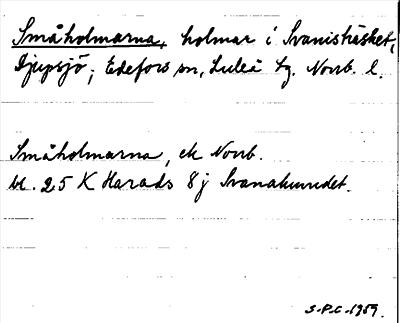 Småholmarna, holmar i Svanisträsket,
Djupsjö; Edefors sn, Luleå tg. Norrb. l.
Småholmarna, ek Norrb.
bl. 25 K Harads 8j Svanahuvudet.
S.P.C. 1959.